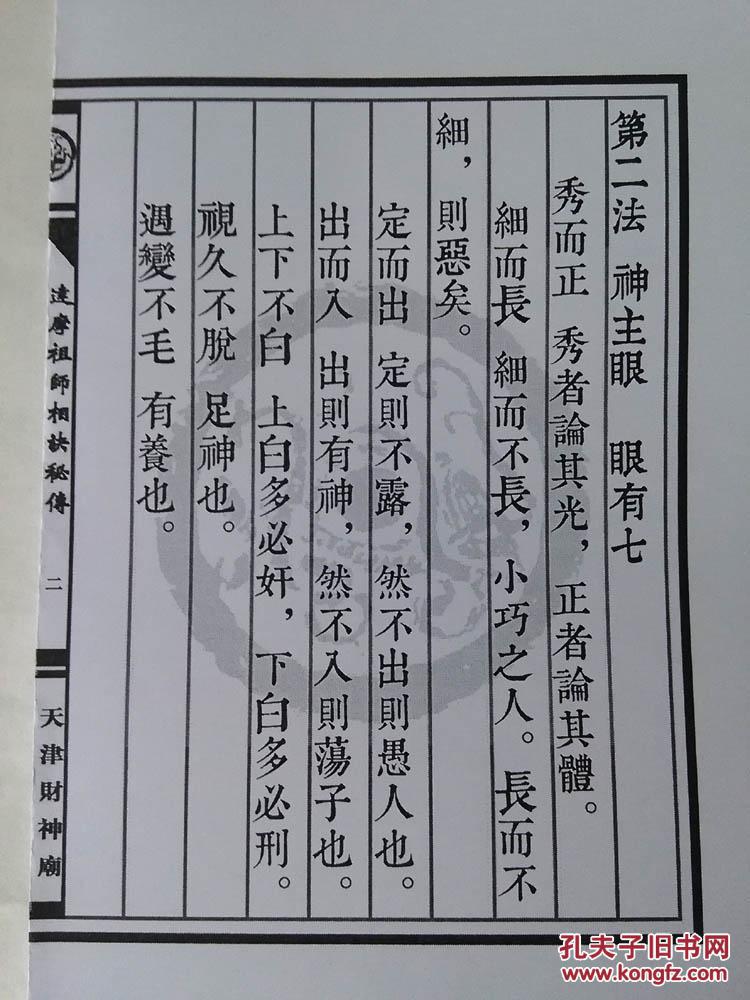 第二法 神主眼 眼有七
秀而正 秀者論其光，正者論其體。
細而長 細而不長，小巧之人。長而不
細，則惡矣。
定而出 定則不露，然不出則愚人也。
出而入 出則有神，然不入則蕩子也。
上下不白 上白多必奸，下白多必刑。
視久不脫 足神也。
遇變不毛 有養也。
達摩祖師相訣秘傳
二
天津財神廟
孔夫子旧书网
www.kongfz.com